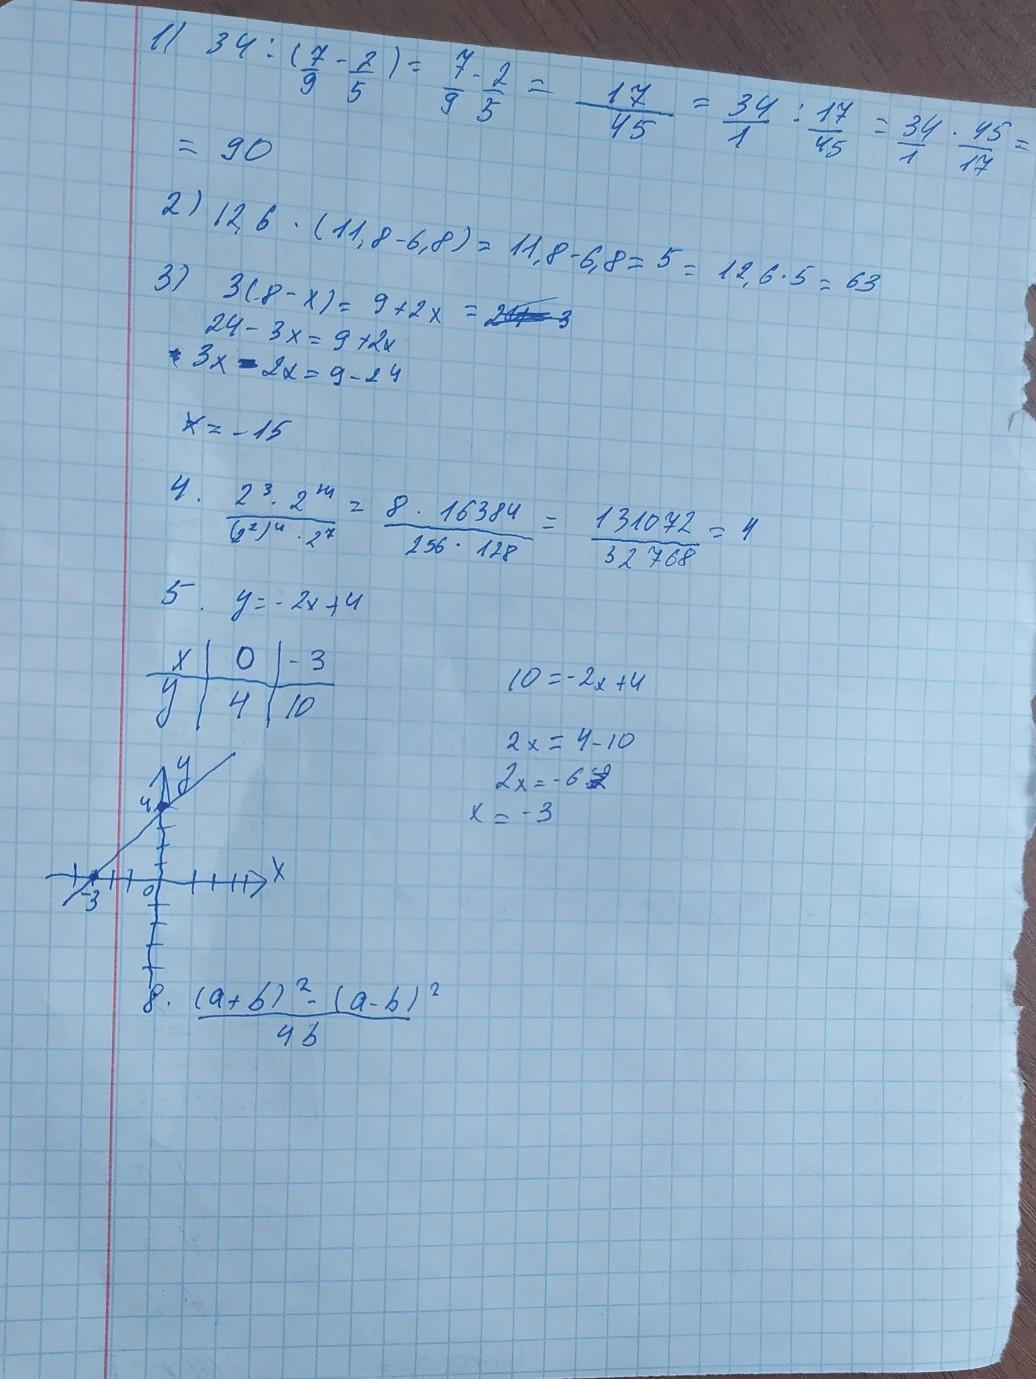 1) 34 : (7/9 - 2/5) = 7/9 - 2/5 = 17/45 = 34/1 : 17/45 = 34/1 · 45/17 =
= 90
2) 12,6 · (11,8 - 6,8) = 11,8 - 6,8 = 5 = 12,6 · 5 = 63
3) 3(8 - x) = 9 + 2x =
24 - 3x = 9 + 2x
3x - 2x = 9 - 24
x = -15
4. 2³ · 2¹⁴ / (2²)⁴ · 2⁷ = 8 · 16384 / 256 · 128 = 131072 / 32768 = 4
5. y = -2x + 4
x | 0 | -3
y | 4 | 10
10 = -2x + 4
2x = 4 - 10
2x = -6
x = -3
y
4
x
0
-3
8. (a + b)² - (a - b)² / 4b